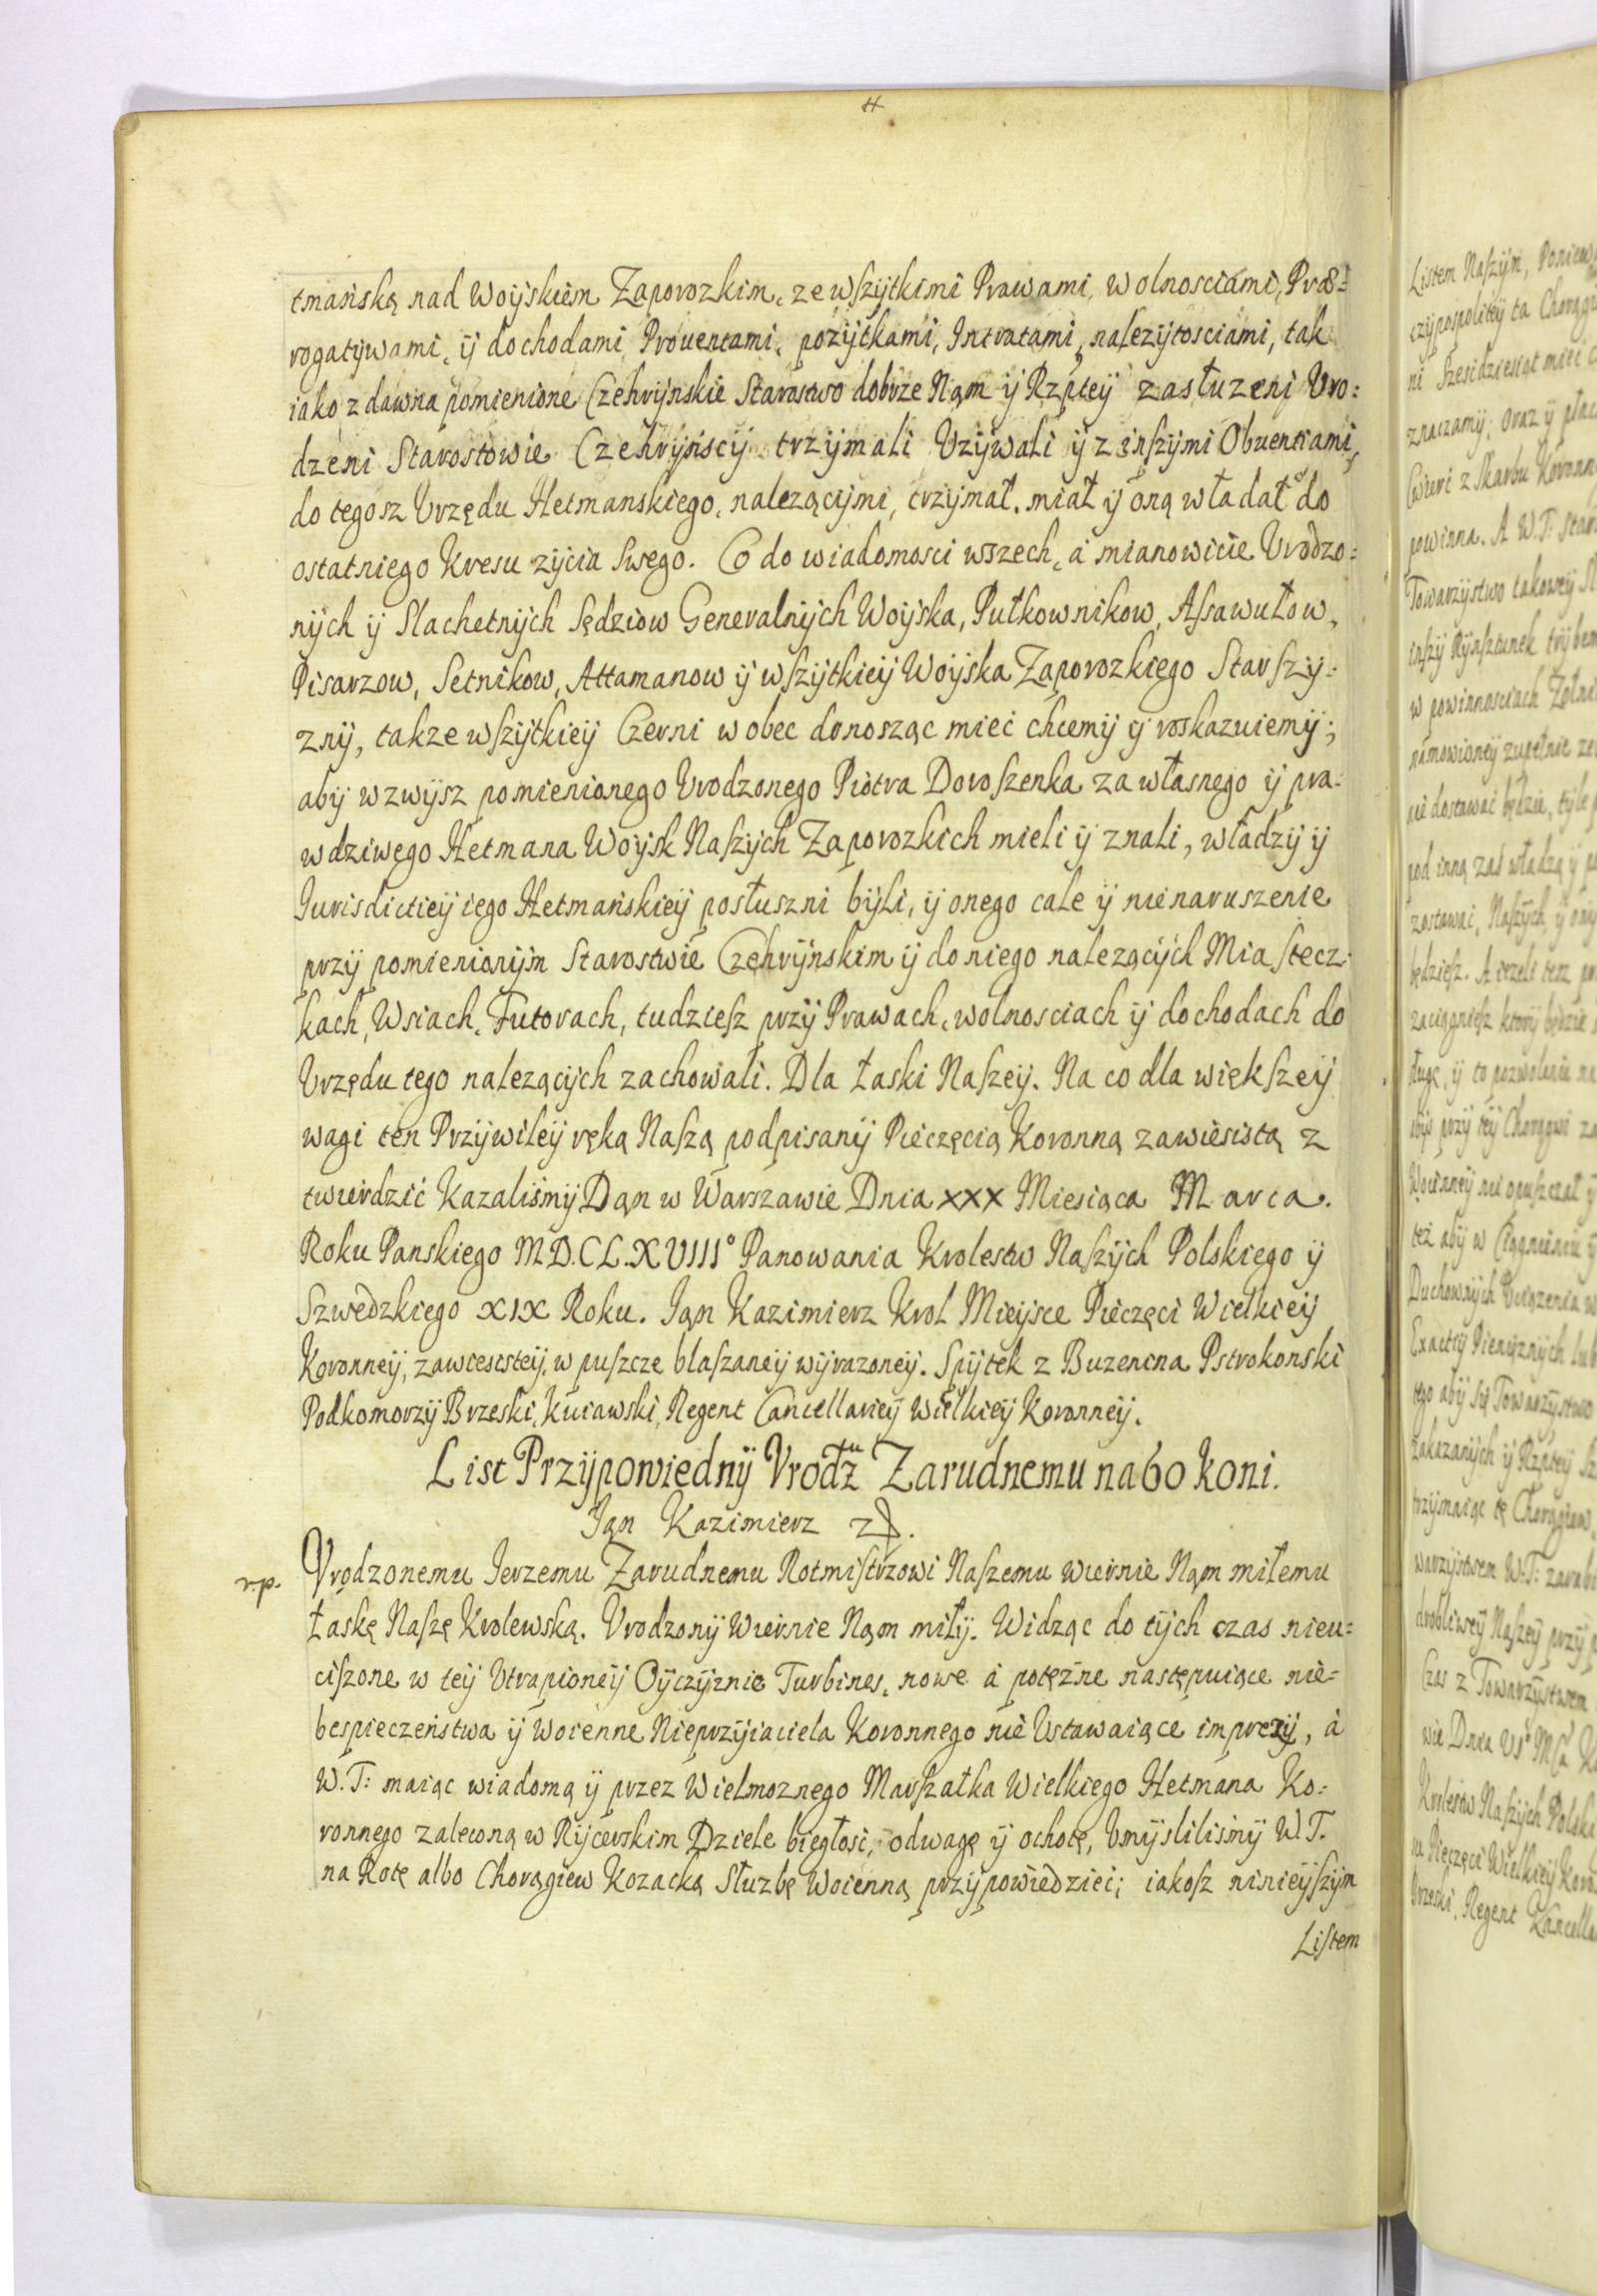 tmańską nad Woyskiem Zaporozkim, ze wszytkimi Prawami, Wolnosciami, Præ=
rogatywami, ÿ dochodami Prouentami, pozÿtkami, Intratami, nalezÿtosciami, tak
iako z dawna pomienione Czehrÿnskie Starostwo dobrze Nąm ÿ Rzptey zasłuzeni Vro=
dzeni Starostowie Czehrÿńscÿ trzÿmali Vzÿwali ÿ z inszÿmi Obuentiami,
do tegosz Vrzędu Hetmanskiego, nalezącÿmi, trzÿmał, miał ÿ oną władał do
ostatniego Kresu zÿcia swego. Co do wiadomosci wszech, a mianowicie Vrodzo=
nÿch ÿ Slachetnÿch Sędziow Generalnÿch Woÿska, Pułkownikow, Assawułow,
Pisarzow, Setnikow, Attamanow ÿ wszÿtkieÿ Woÿska Zaporozkiego Starszÿ=
znÿ, takze wszÿtkieÿ Czerni w obec donosząc miec chcemÿ ÿ roskazuiemÿ;
abÿ wzwÿsz pomienionego Vrodzonego Piotra Doroszenka za własnego ÿ pra=
wdziwego Hetmana Woÿsk Naszÿch Zaporozkich mieli ÿ znali, władzÿ ÿ
Iurisdictieÿ iego Hetmańskieÿ posłuszni bÿli, ÿ onego cale ÿ nienaruszenie
przÿ pomienionÿm Starostwie Czehrÿnskim ÿ do niego nalezącÿch Miastecz=
kach, Wsiach, Futorach, tudziesz przÿ Prawach, wolnosciach ÿ dochodach do
Vrzędu tego nalezącÿch zachowali. Dla Łaski Naszeÿ. Na co dla większeÿ
wagi ten Przÿwileÿ ręką Naszą podpisanÿ Pieczęcią Koronną zawiesistą z
twierdzić Kazalismÿ Dąn w Warszawie Dnia XXX Miesiąca Marca.
Roku Panskiego M.D.CL.XVIII° Panowania Krolestw Naszÿch Polskiego ÿ
Szwedzkiego XIX Roku. Iąn Kazimierz Krol Mieÿsce Pieczęci Wielkieÿ
Koronneÿ, zawiesisteÿ, w puszcze blaszaneÿ wÿrazoneÿ. Spÿtek z Buzencna Pstrokonski
Podkomorzÿ Brzeski, Kuiawski, Regent Cancellarieÿ Wielkieÿ Koronneÿ.
List Przÿpowiednÿ Vrodz<sup>tu</sup> Zarudnemu na 60 koni.
Iąn Kazimierz
r.p. Vrodzonemu Ierzemu Zarudnemu Rotmistrzowi Naszemu wiernie Nąm miłemu
Łaskę Naszę Krolewską. Vrodzonÿ Wiernie Nąm miłÿ. Widząc do tÿch czas nieu=
ciszone w teÿ Vtrapioneÿ Oÿczÿznie Turbines, nowe a potęzne następuiące nie=
bespieczeństwa ÿ Woienne Nieprzÿiaciela Koronnego nie Vstawaiące imprezÿ, à
W.T: maiąc wiadomą ÿ przez Wielmoznego Marszałka Wielkiego Hetmana Ko=
ronnego zaleconą w Rÿcerskim Dziele biegłosć, odwagę ÿ ochotę, Vmÿslilismÿ W.T.
na Rotę albo Chorągiew Kozacką Słuzbę Woienną przÿpowiedzieć; iakosz ninieÿszÿm
Listem